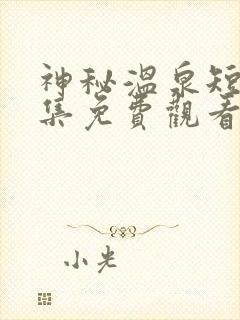 神秘溫泉短
集免費觀看
小光